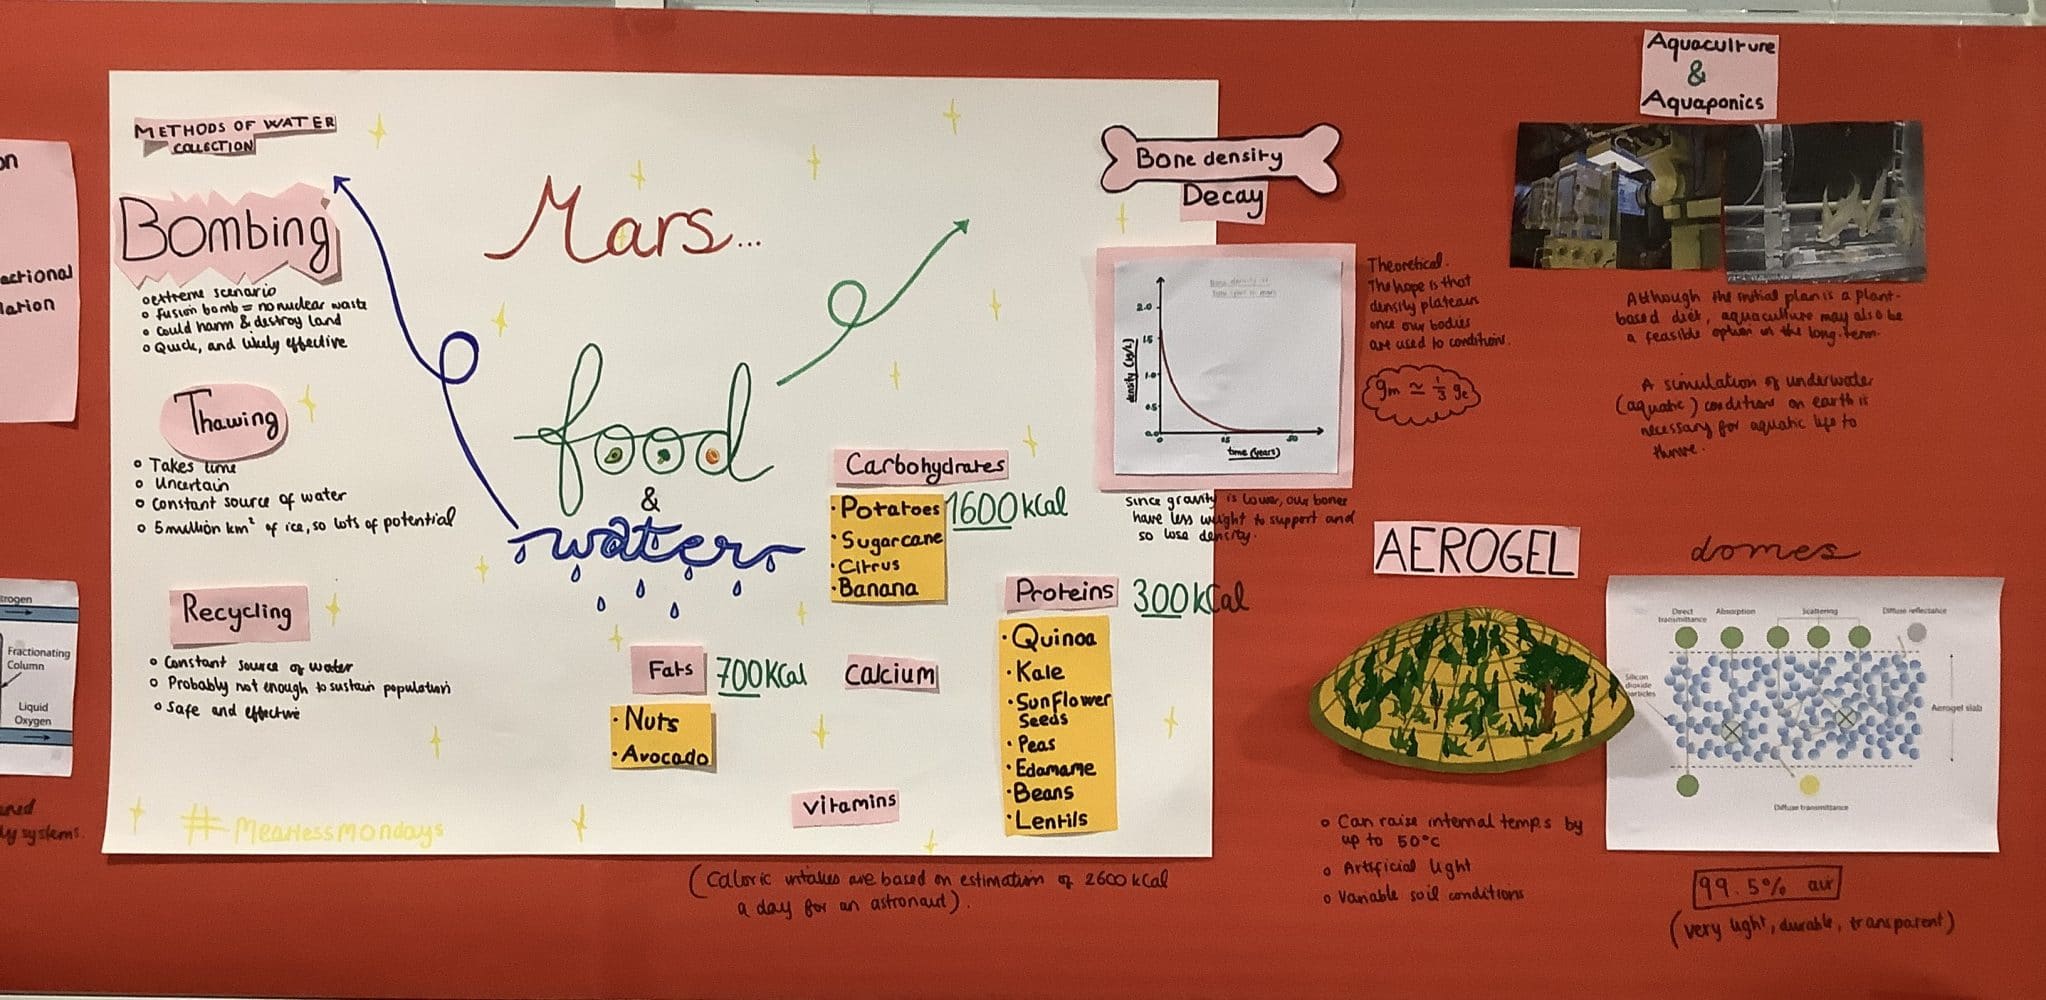 METHODS OF WATER
COLLECTION
Bombing
extreme scenario
fusion bomb = no nuclear waste
could harm & destroy land
Quick, and likely effective
Thawing
Takes time
Uncertain
constant source of water
5 million km² of ice, so lots of potential
Recycling
Constant source of water
Probably not enough to sustain population
Safe and effective
#Meatlessmondays
Mars...
food
&
water
Carbohydrates
1600 kCal
·Potatoes
·Sugarcane
·Citrus
·Banana
Fats
700 KCal
·Nuts
·Avocado
Calcium
Vitamins
Proteins
300 kCal
·Quinoa
·Kale
·Sunflower
Seeds
·Peas
·Edamame
·Beans
·Lentils
(Caloric intakes are based on estimation of 2600 kCal
a day for an astronaut).
Bone density
Decay
density (kg/L)
2.0
1.5
1.0
0.5
0.0
0
25
50
time (years)
Theoretical.
The hope is that
density plateaus
once our bodies
are used to conditions.
gm ≃ 1/3 ge
Since gravity is lower, our bones
have less weight to support and
so lose density.
Aquaculture
&
Aquaponics
Although the initial plan is a plant-
based diet, aquaculture may also be
a feasible option in the long-term.
A simulation of underwater
(aquatic) conditions on earth is
necessary for aquatic life to
thrive.
AEROGEL
domes
Can raise internal temps by
up to 50°C
Artificial light
Variable soil conditions
Direct
transmittance
Absorption
Scattering
Diffuse reflectance
Silicon
dioxide
particles
Aerogel slab
Diffuse transmittance
99.5% air
(very light, durable, transparent)
on
actional
lation
trogen
Fractionating
Column
Liquid
Oxygen
ly systems.